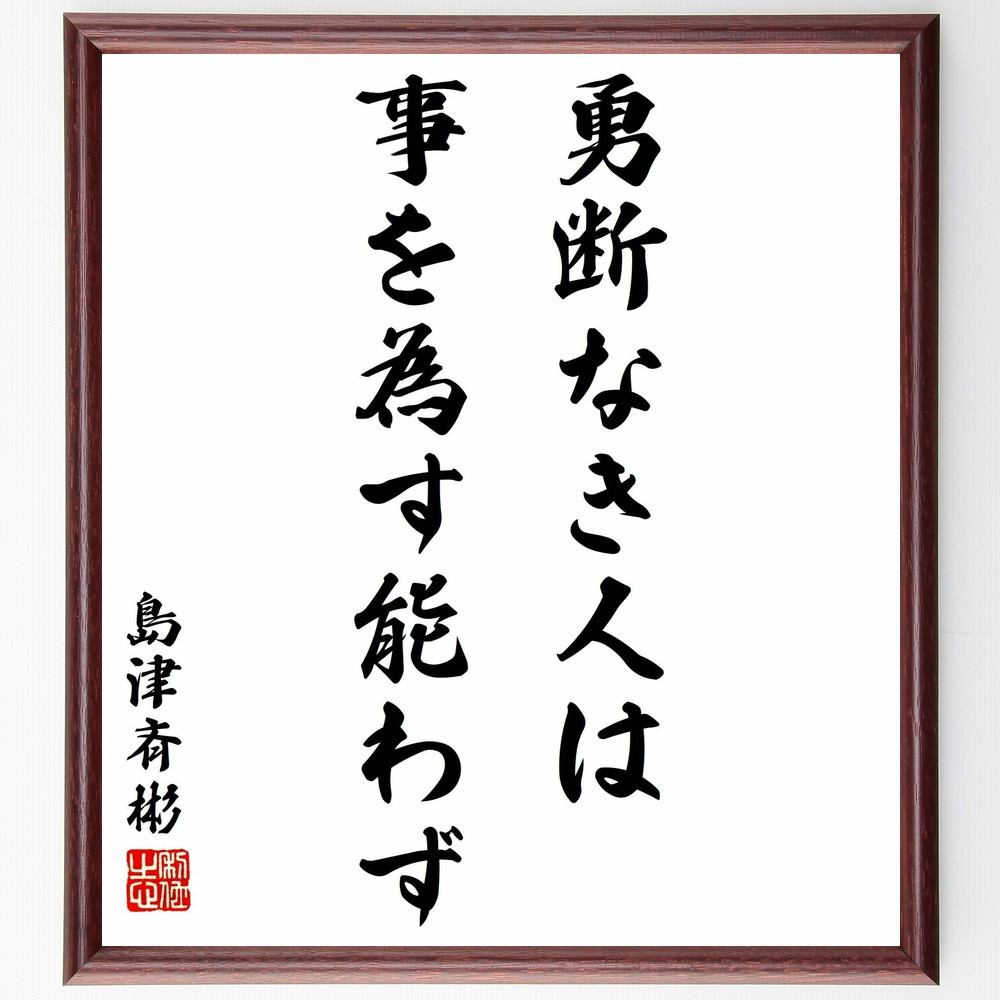 勇断なき人は
事を為す能わず
島津斉彬